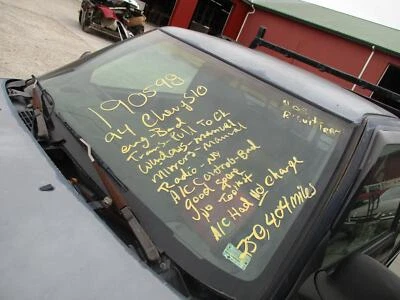 190598
94 Chevy S10
eng-Bad
Trans-Pull To Ck
Windows-manual
Mirrors-Manual
Radio-No
A/C Controls-Bad
good Spare
No Toolkit
A/C Had No Charge
250,404 miles
Has